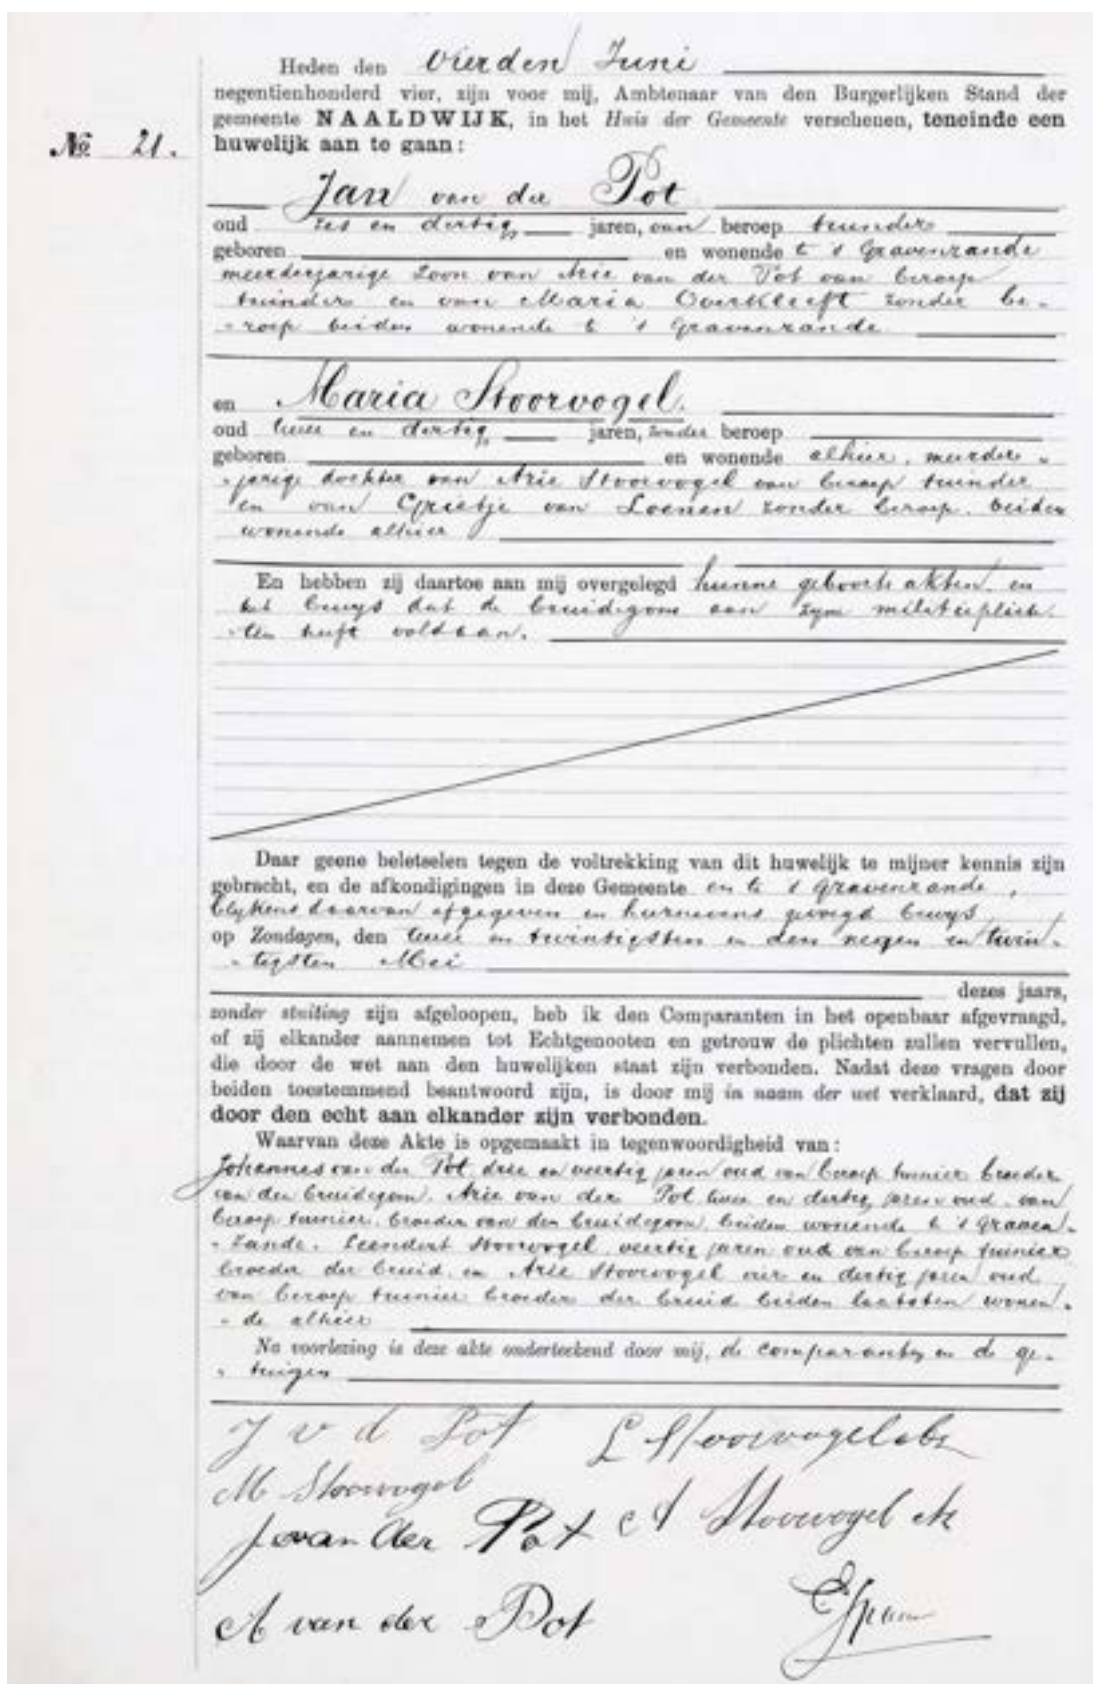 Heden den vierden Juni
negentienhonderd vier, zijn voor mij, Ambtenaar van den Burgerlijken Stand der
gemeente NAALDWIJK, in het Huis der Gemeente verschenen, teneinde een
No 21.
huwelijk aan te gaan:
Jan van der Pot
oud zes en dertig jaren, van beroep tuinder
geboren en wonende te 's Gravenzande
meerderjarige zoon van Arie van der Pot van beroep
tuinder en van Maria Overkleeft zonder be-
-roep beiden wonende te 's Gravenzande
en Maria Stoorvogel.
oud twee en dertig jaren, zonder beroep
geboren en wonende alhier, meerder-
-jarige dochter van Arie Stoorvogel van beroep tuinder
en van Grietje van Loenen zonder beroep, beiden
wonende alhier
En hebben zij daartoe aan mij overgelegd hunne geboorte akten en
het bewys dat de bruidegom aan zyne militieplich-
-ten heeft voldaan.
Daar geene beletselen tegen de voltrekking van dit huwelijk te mijner kennis zijn
gebracht, en de afkondigingen in deze Gemeente en te 's Gravenzande,
blykens daarvan afgegeven en hiernevens gevoegd bewys
op Zondagen, den twee en twintigsten en den negen en twin-
-tigsten Mei
dezes jaars,
zonder stuiting zijn afgeloopen, heb ik den Comparanten in het openbaar afgevraagd,
of zij elkander aannemen tot Echtgenooten en getrouw de plichten zullen vervullen,
die door de wet aan den huwelijken staat zijn verbonden. Nadat deze vragen door
beiden toestemmend beantwoord zijn, is door mij in naam der wet verklaard, dat zij
door den echt aan elkander zijn verbonden.
Waarvan deze Akte is opgemaakt in tegenwoordigheid van:
Johannes van der Pot, drie en veertig jaren oud van beroep tuinier broeder
van den bruidegom, Arie van der Pot twee en dertig jaren oud, van
beroep tuinier, broeder van den bruidegom, beiden wonende te 's Graven-
-zande. Leendert Stoorvogel, veertig jaren oud van beroep tuinier
broeder der bruid, en Arie Stoorvogel vier en dertig jaren oud
van beroep tuinier broeder der bruid beiden laatsten wonen-
-de alhier
Na voorlezing is deze akte onderteekend door mij, de comparanten en de ge-
-tuigen
J v d Pot L Stoorvogel
M Stoorvogel
J van der Pot A Stoorvogel
A van der Pot